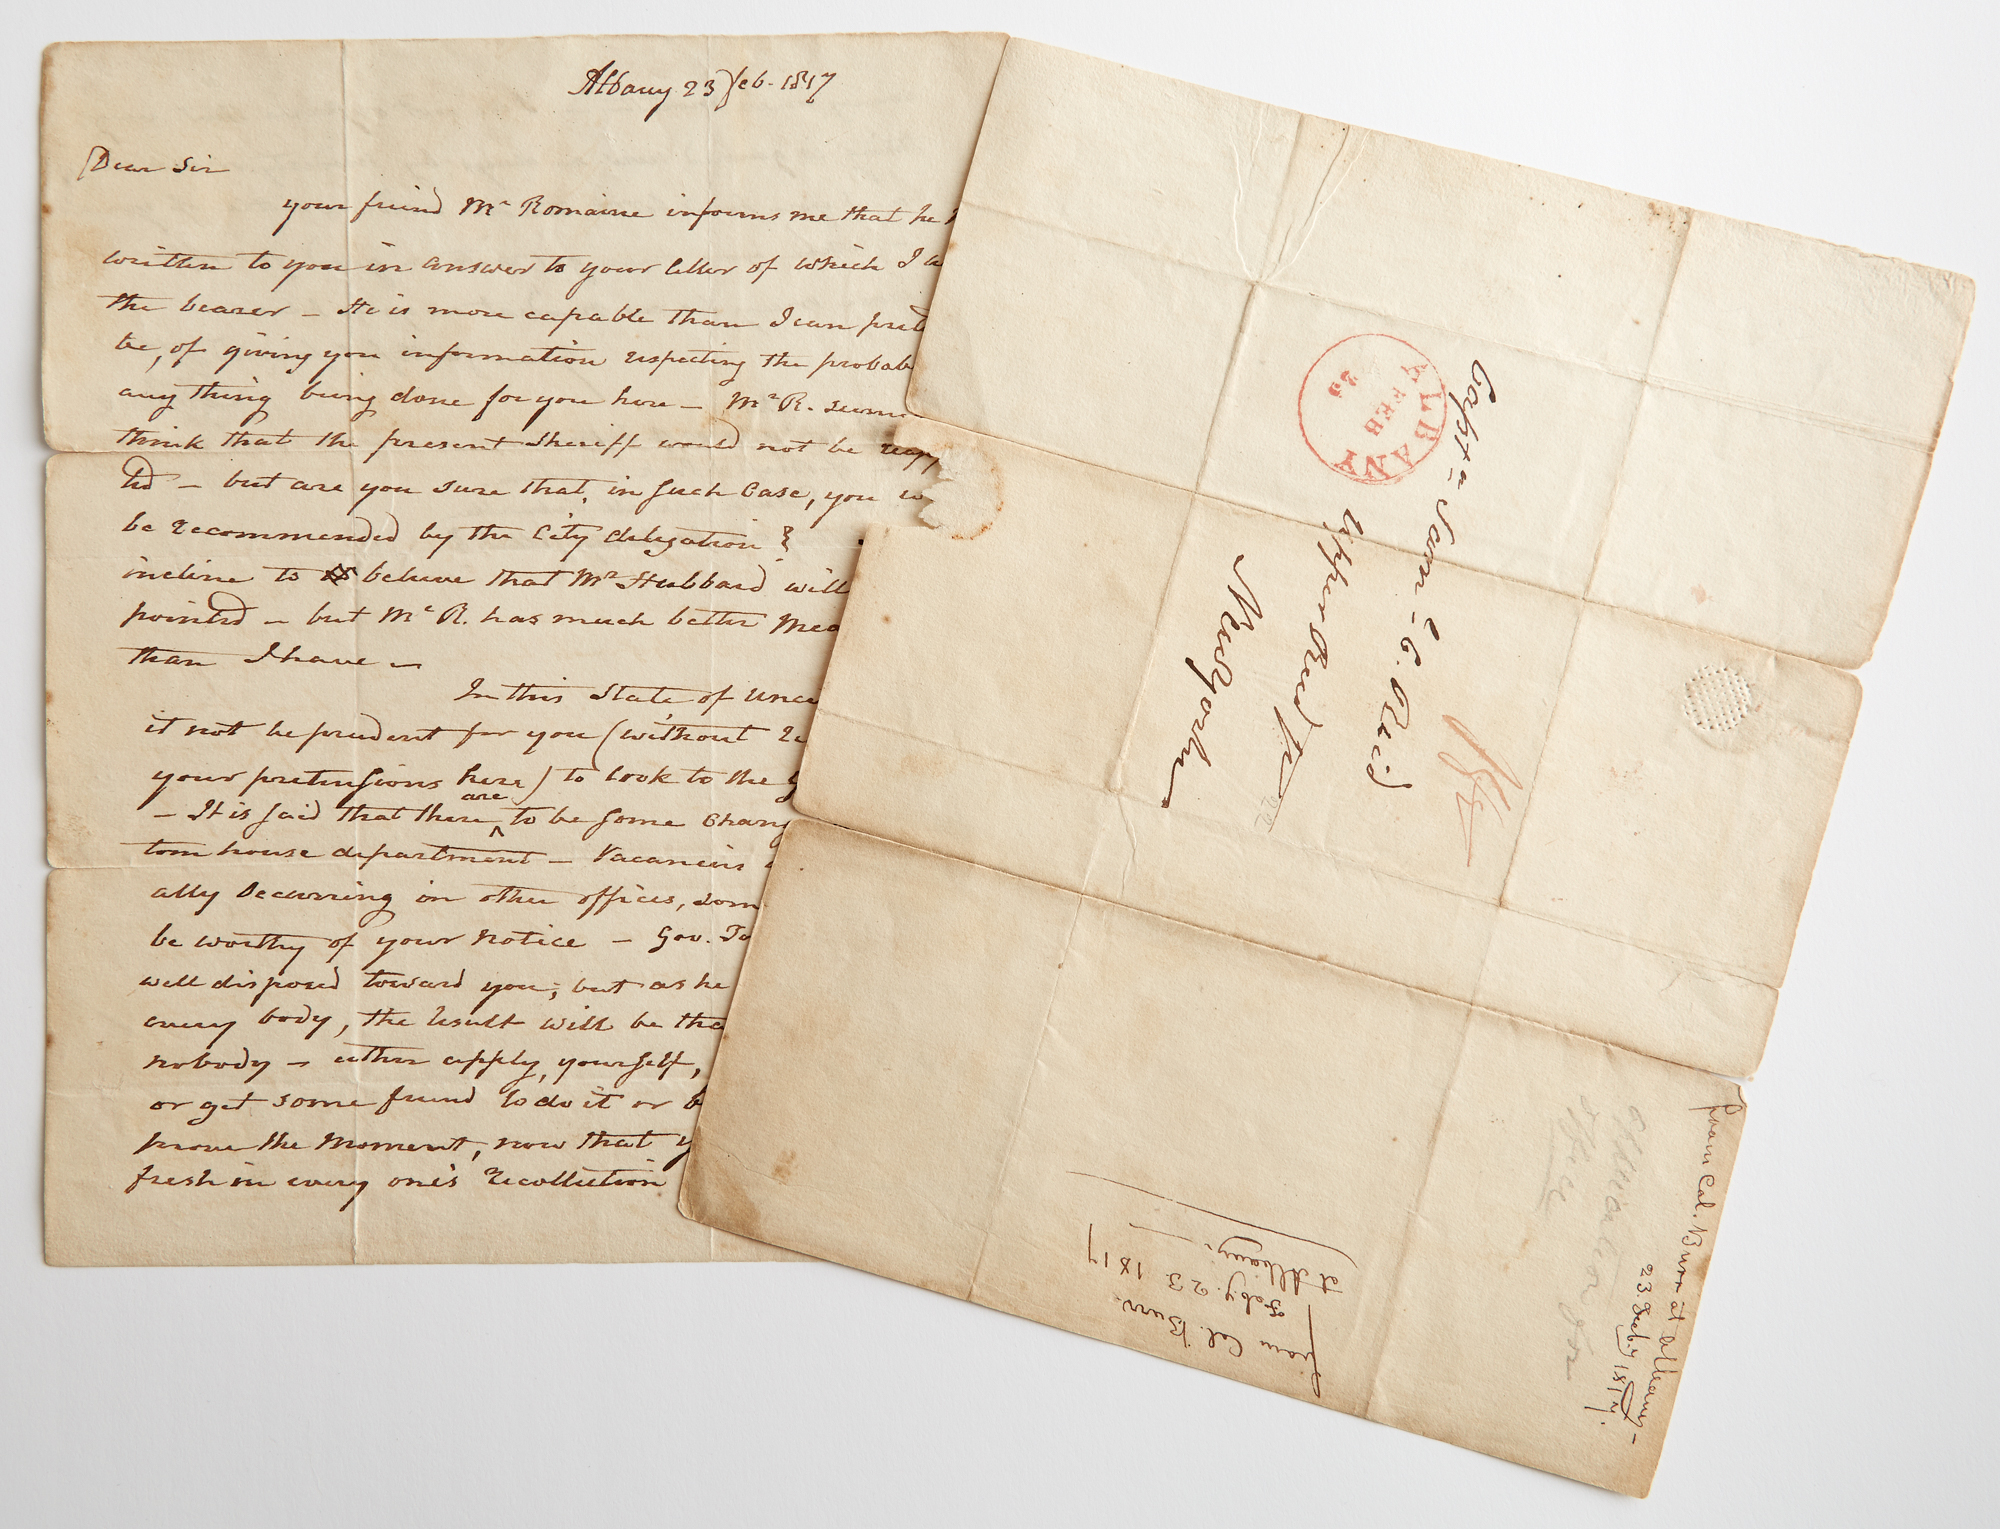 Albany 23 Feb. 1817
Dear Sir
your friend Mr Romaine informs me that he
written to you in answer to your letter of which I
the bearer – He is more capable than I can
be, of giving you information respecting the probab
any thing being done for you here – Mr R. seem
think that the present Sheriff would not be reapp
ted – but are you sure that, in such Case, you w
be recommended by the City delegation ?
incline to believe that Mr Hubbard will
pointed – but Mr R. has much better mea
than I have –
In this State of unce
it not be prudent for you (without
your pretensions here) to look to the
– It is said that there are to be some chang
tom house department – Vacancies
ally occurring in other offices, som
be worthy of your notice – Gov. To
well disposed toward you; but as he
every body, the result will be tha
nobody – either apply, yourself,
or get some friend to do it or b
prove the moment, now that y
fresh in every one's recollection
ALBANY
FEB
23
Captn Sam. C. Reid
Upper Reed St
New York
from Col. Burr
Feby. 23. 1817
at Albany.
from Col. Burr at Albany –
23. Feby 1817.